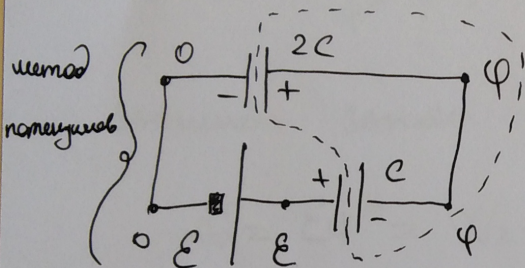 метод
потенциалов
0 2C φ
- +
+ C
- 
0 ℰ ℰ φ